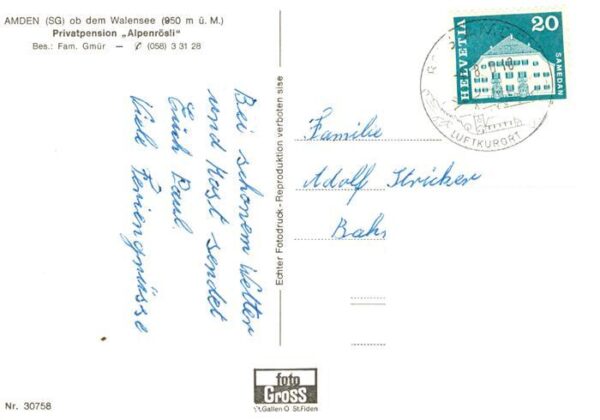 AMDEN (SG) ob dem Walensee (950 m ü. M.)
Privatpension „Alpenrösli“
Bes.: Fam. Gmür – ✆ (058) 3 31 28
Bei schönem Wetter
und Most sendet
Euch Paul.
Viele Feriengrüsse
Echter Fotodruck - Reproduktion verboten sise
HELVETIA
20
SAMEDAN
LUFTKURORT
Familie
Adolf Stricker
Bah
foto
Gross
St.Gallen O St.Fiden
Nr. 30758